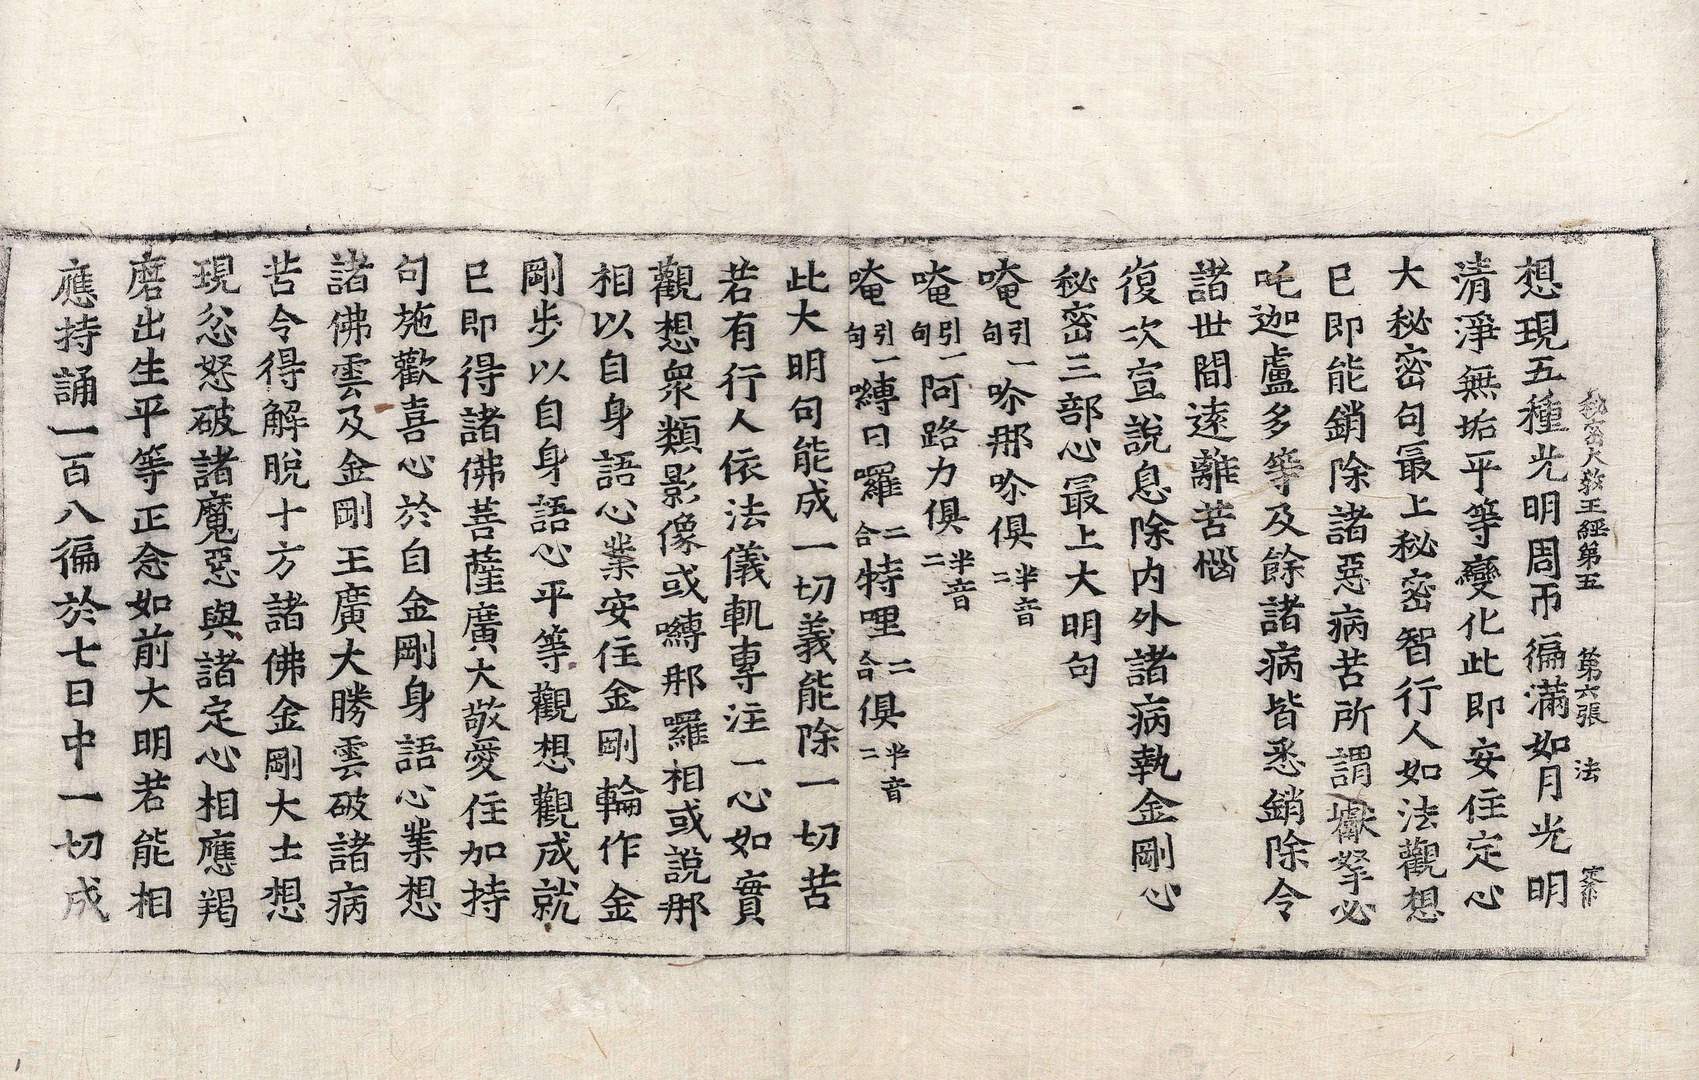 秘密大敎王經第五 第六張 法
想現五種光明周帀徧滿如月光明
清淨無垢平等變化此即安住定心
大秘密句最上秘密智行人如法觀想
已即能銷除諸惡病苦所謂巘拏必
吒迦盧多等及餘諸病皆悉銷除令
諸世間遠離苦惱
復次宣說息除內外諸病執金剛心
秘密三部心最上大明句
唵引一句唥那唥俱半音二
唵引一句阿路力俱半音二
唵引一句嚩日囉二合特哩二合俱半音二
此大明句能成一切義能除一切苦
若有行人依法儀軌專注一心如實
觀想衆類影像或嚩那囉相或說那
相以自身語心業安住金剛輪作金
剛步以自身語心平等觀想觀成就
已即得諸佛菩薩廣大敬愛住加持
句施歡喜心於自金剛身語心業想
諸佛雲及金剛王廣大勝雲破諸病
苦令得解脫十方諸佛金剛大士想
現忿怒破諸魔惡與諸定心相應羯
磨出生平等正念如前大明若能相
應持誦一百八徧於七日中一切成